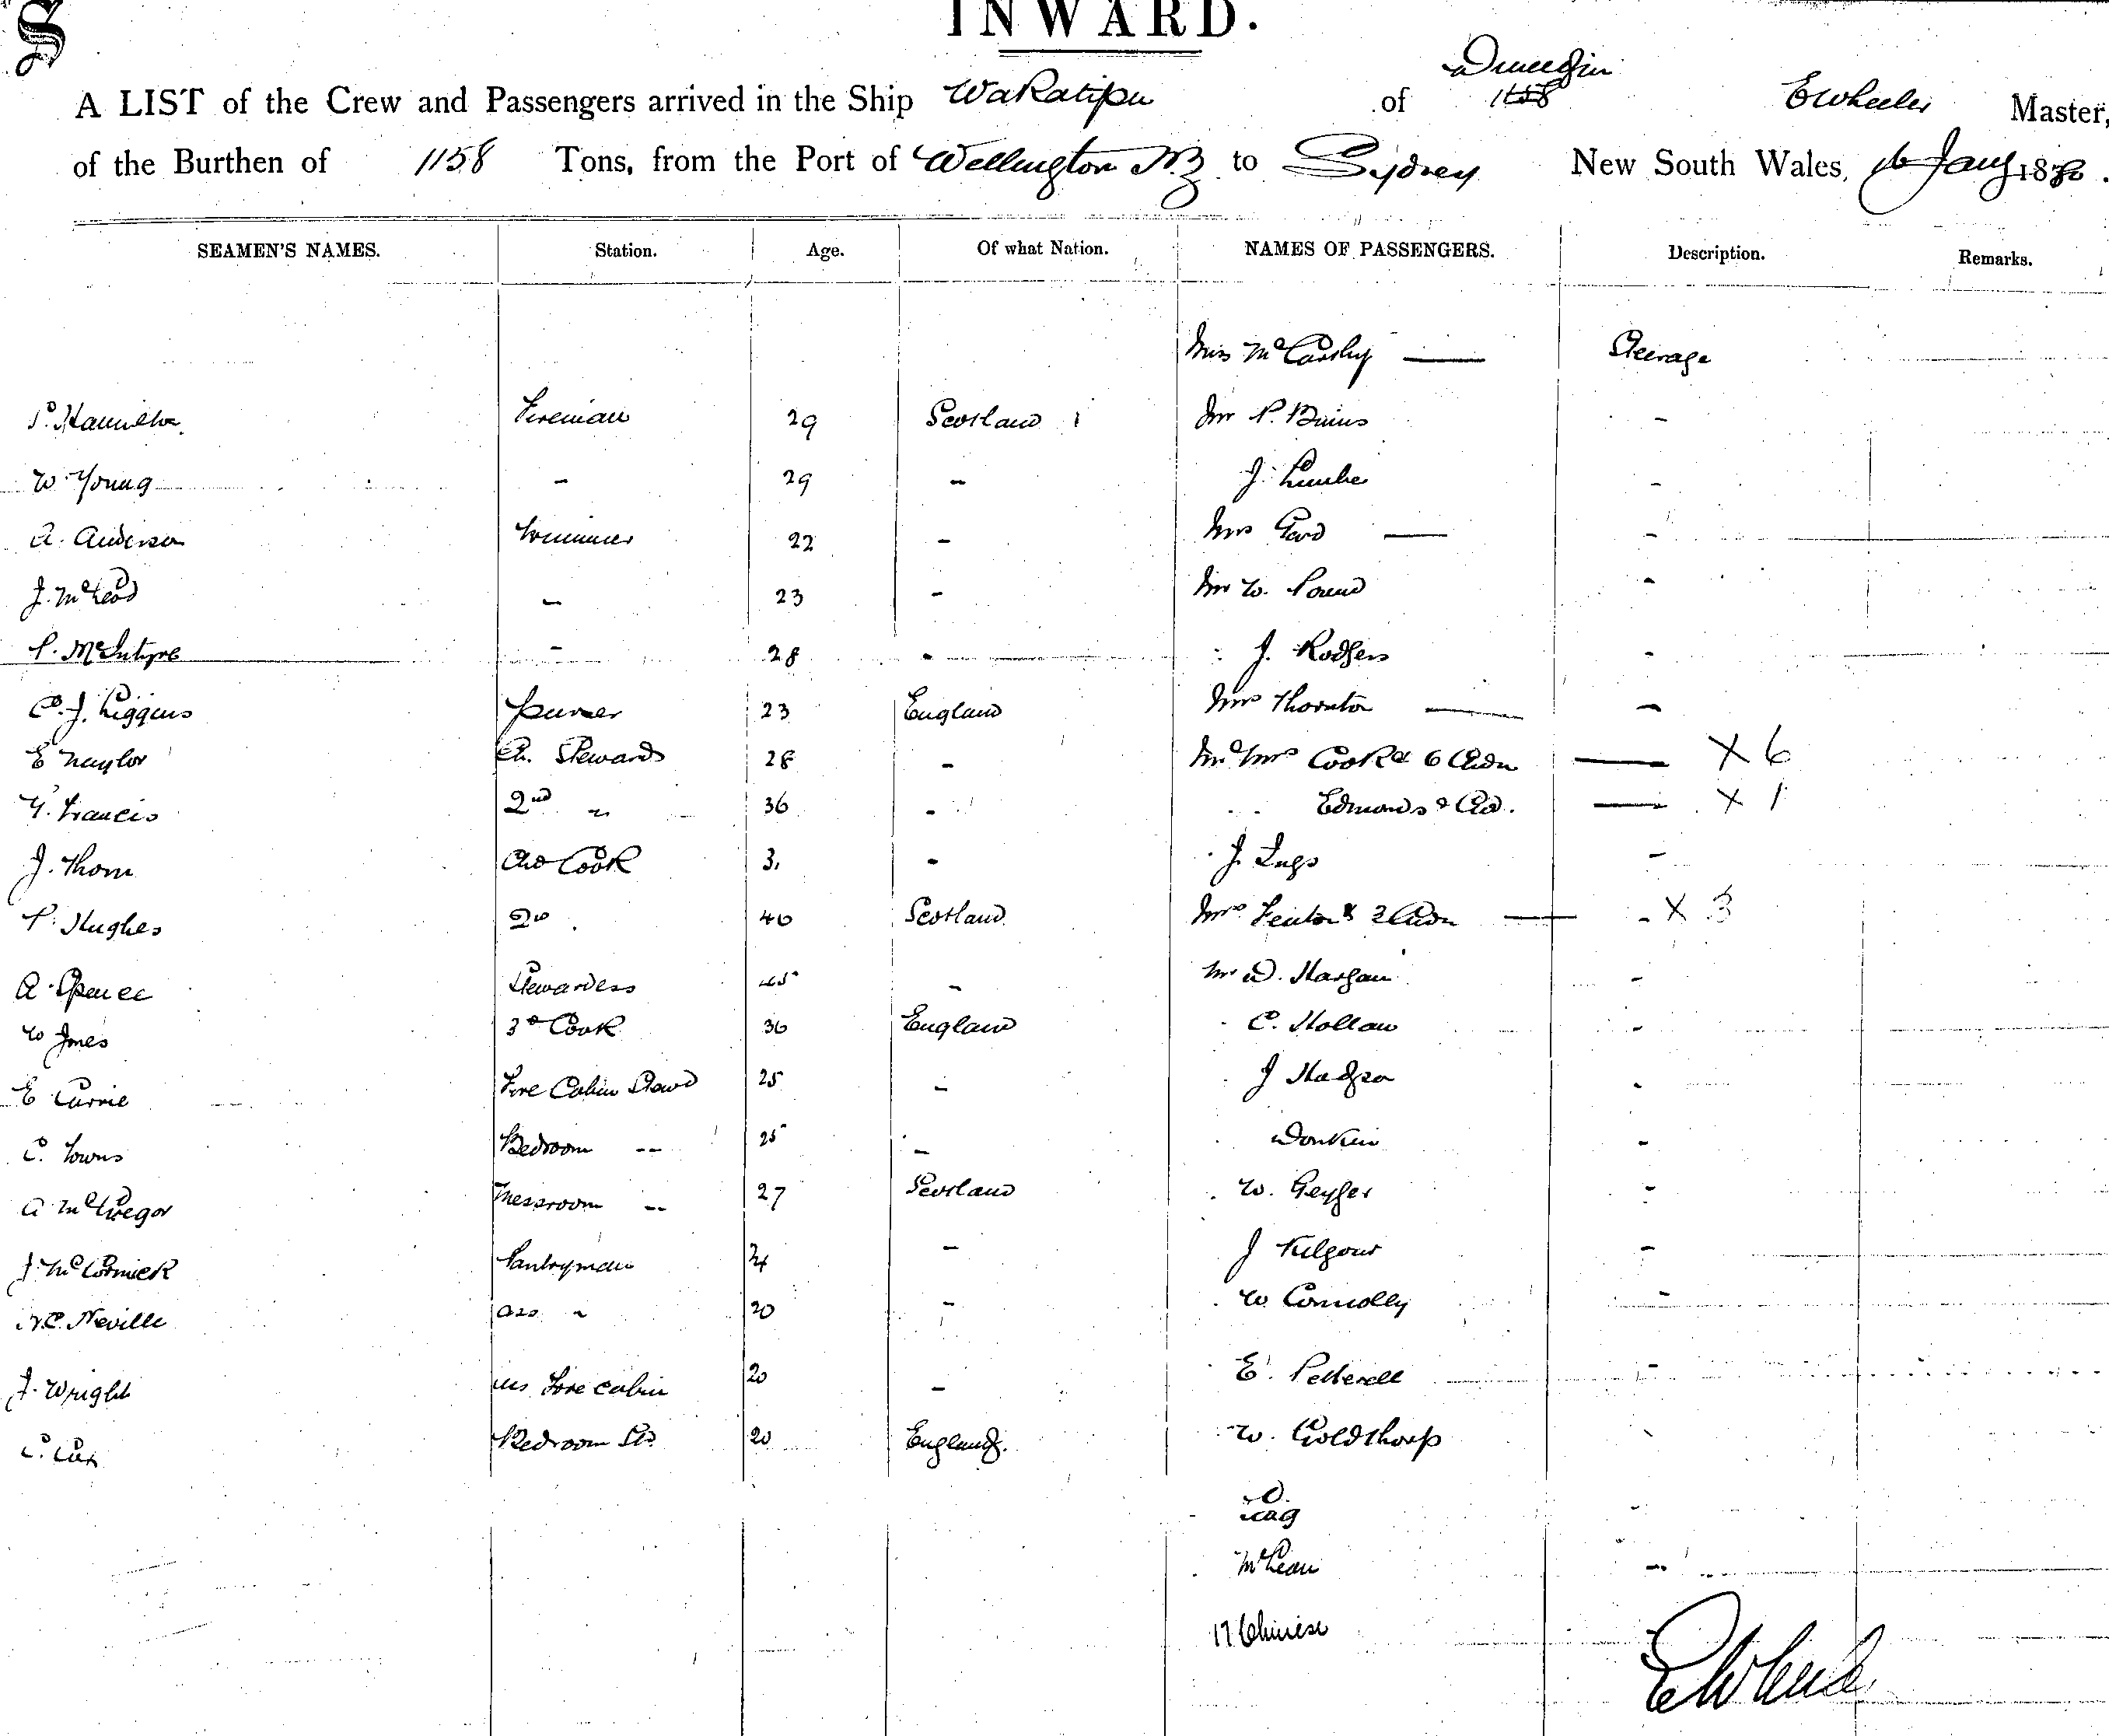 S
INWARD.
A LIST of the Crew and Passengers arrived in the Ship Wakatipu of Dunedin 1158 E Wheeler Master,
of the Burthen of 1158 Tons, from the Port of Wellington N.Z to Sydney New South Wales, 16 Jany 18
SEAMEN'S NAMES. Station. Age. Of what Nation. NAMES OF PASSENGERS. Description. Remarks.
Miss McCarthy — Steerage
P. Hamilton Fireman 29 Scotland Mr P. Binns -
W. Young - 29 - J. -
A. Anderson Trimmer 22 - Mrs — -
J. McLeod - 23 - Mr W. Pound -
P. McIntyre - 28 - J. Rodgers -
C. J. Liggins Purser 23 England Mrs Thornton — -
E Naylor Ch. Steward 28 - Mr Mrs Cook & 6 Chdn — X 6
Francis 2nd " 36 - " Edmonds & Chd. — X 1
J. Thom Cook 3 - J. -
P. Hughes 2nd 40 Scotland Mrs Fenton & 3 Chdn — - X 3
A. Spence Stewardess 45 - Mr D. -
W Jones 3d Cook 36 England C. -
E Currie Fore Cabin Stewd 25 - J -
C. Towns Bedroom -- 25 - Donkin -
A McGregor Messroom -- 27 Scotland W. -
J. McCormick Pantryman 24 - J Kilgour -
Neville ass " 20 - W Connolly -
J. Wright ass Fore cabin 20 - E. Petterell -
C. Cox Bedroom St. 20 England. W. Goldthorp
-
McLean -
17 Chinese -
E Wheeler